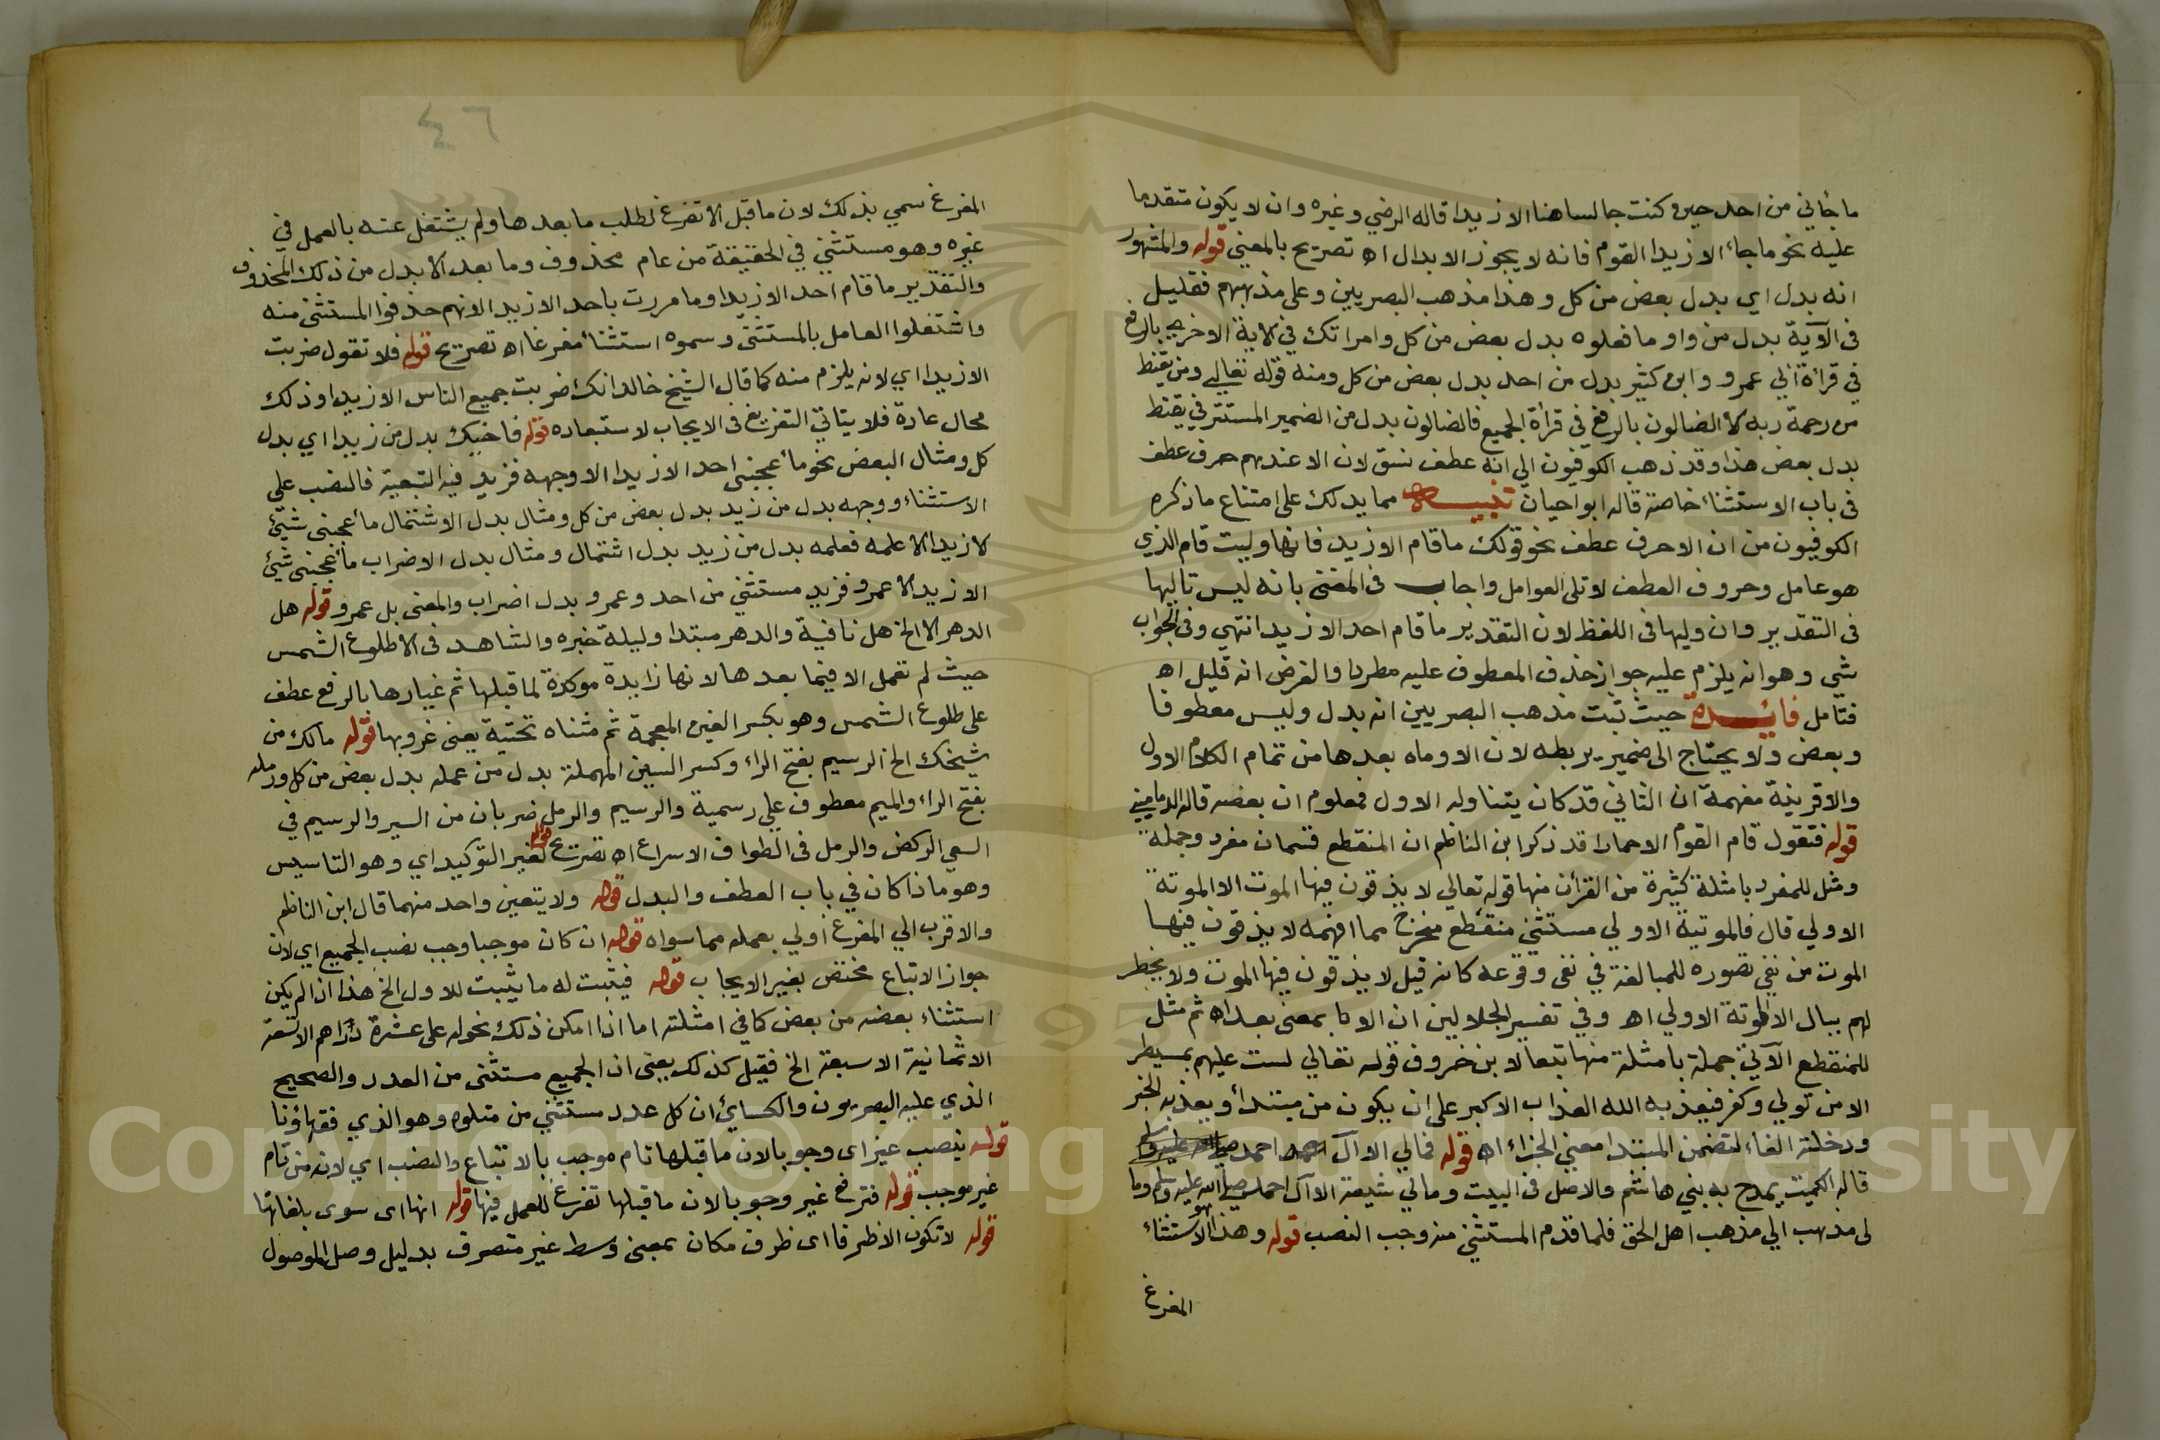 ما جاني من احد حين كنت جالسا هنا الا زيدا قاله الرضي وغيره وان لا يكون متقدما
عليه نحو ما جاء الا زيدا القوم فانه لا يجوز الابدال اه تصريح بالمعنى قوله والمشهور
انه بدل اي بدل بعض من كل وهذا مذهب البصريين وعلى مذهبهم فقليل
في الآية بدل من واو ما فعلوه بدل بعض من كل وامراتك في لاية الاخرى بالرفع
في قراة ابي عمرو وابن كثير بدل من احد بدل بعض من كل ومنه قوله تعالي ومن يقنط
من رحمة ربه الا الضالون بالرفع في قراة الجميع فالضالون بدل من الضمير المستتر في يقنط
بدل بعض هذا وقد ذهب الكوفيون الي انه عطف نسق لان الا عندهم حرف عطف
في باب الاستثناء خاصة قاله ابو حيان تنبيه مما يدلك على امتناع ما ذكره
الكوفيون من ان الا حرف عطف نحو قولك ما قام الا زيد فانها وليت قام الذي
هو عامل وحروف العطف لا تلى العوامل واجاب في المغنى بانه ليس تاليها
في التقدير وان وليها في اللفظ لان التقدير ما قام احد الا زيد انتهي وفي الجواب
شى وهو انه يلزم عليه جواز حذف المعطوف عليه مطردا والفرض انه قليل اه
فتامل فائدة حيث ثبت مذهب البصريين انه بدل وليس معطوفا
وبعض ولا يحتاج الى ضمير يربطه لان الا وماه بعدها من تمام الكلام الاول
والا قرينة مفهمة ان الثاني قد كان يتناوله الاول فمعلوم ان بعضه قاله الدماميني
قوله فتقول قام القوم الا حمارا قد ذكر ابن الناظم ان المنقطع قسمان مفرد وجملة
ومثل للمفرد بامثلة كثيرة من القرآن منها قوله تعالي لا يذوقون فيها الموت الا الموتة
الاولي قال فالموتة الاولي مستثني منقطع مخرج مما افهمه لا يذوقون فيها
الموت من نفي تصوره للمبالغة في نفي وقوعه كانه قيل لا يذوقون فيها الموت ولا يخطر
لهم ببال الا الموتة الاولي اه وفي تفسير الجلالين ان الا بمعنى بعد اه ثم مثل
للمنقطع الآتي جملة بامثلة منها تبعا لابن خروف قوله تعالي لست عليهم بمسيطر
الا من تولي وكفر فيعذبه الله العذاب الاكبر على ان يكون من مبتدأ ويعذبه الخبر
ودخلته الفاء لتضمن المبتدا معنى الجزاء اه قوله فمالي الا آل احمد
قاله الكميت يمدح به بني هاشم والاصل في البيت ومالي شيعة الا آل احمد صلى الله عليه وسلم وما
لى مذهب الي مذهب اهل الحق فلما قدم المستثنى منه وجب النصب قوله وهذا هو الاستثناء
المفرغ
٤٦
المفرغ سمي بذلك لان ما قبل الا تفرغ لطلب ما بعدها ولم يشتغل عنه بالعمل في
غيره وهو مستثني في الحقيقة من عام محذوف وما بعد الا بدل من ذلك المحذوف
والتقدير ما قام احد الا زيدا وما مررت باحد الا زيد الا انهم حذفوا المستثنى منه
واشتغلوا العامل بالمستثنى وسموه استثناء مفرغا اه تصريح قوله فلا تقول ضربت
الا زيدا اي لانه يلزم منه كما قال الشيخ خالد انك ضربت جميع الناس الا زيدا وذلك
محال عادة فلا يتاتي التفريغ في الايجاب لاستبعاده قوله فاخيك بدل من زيد اي بدل
كل ومثال البعض نحو ما اعجبني احد الا زيدا الا وجهه فزيد فيه التبعية فالنصب على
الاستثناء ووجهه بدل من زيد بدل بعض من كل ومثال بدل الاشتمال ما اعجبنى شيئ
لا زيدا الا علمه فعلمه بدل من زيد بدل اشتمال ومثال بدل الاضراب ما اعجبنى شيئ
الا زيد الا عمرو فزيد مستثني من احد وعمرو بدل اضراب والمعنى بل عمرو قوله هل
الدهر الا الخ هل نافية والدهر مبتدا وليلة خبره والشاهد في الا طلوع الشمس
حيث لم تعمل الا فيما بعدها لانها زايدة موكدة لما قبلها ثم غيارها بالرفع عطف
على طلوع الشمس وهو بكسر الغين المعجمة ثم مثناه تحتية يعنى غروبها قوله مالك من
شيخك الخ الرسيم بفتح الراء وكسر السين المهملة بدل من عمله بدل بعض من كل ورمله
بفتح الراء والميم معطوف علي رسمية والرسيم والرمل ضربان من السير والرسيم في
السعي الركض والرمل في الطواف الاسراع اه تصريح قوله لغير التوكيد اي وهو التاسيس
وهو ماذا كان في باب العطف والبدل قوله ولا يتعين واحد منهما قال ابن الناظم
والاقرب الي المفرغ اولي بعمله مما سواه قوله ان كان موجبا وجب نصب الجميع اي لان
جواز الاتباع مختص بغير الايجاب قوله فيثبت له ما يثبت للاول الخ هذا اذا لم يكن
استثناء بعضه من بعض كما في امثلته اما اذا امكن ذلك نحو له على عشرة دراهم الا تسعة
الا ثمانية الا سبعة الخ فقيل كذلك يعنى ان الجميع مستثنى من العدد والصحيح
الذي عليه البصريون والكسائي ان كل عدد مستثني من متلوه وهو الذي فقهاؤنا
قوله بنصب غير اى وجوبا لان ما قبلها تام موجب بالاتباع والنصب اي لانه من تام
غير موجب قوله فترفع غير وجوبا لان ما قبلها تفرغ للعمل فيها قوله انها اى سوى بلغاتها
قوله لا تكون الا ظرفا اى ظرف مكان بمعنى وسط غير متصرف بدليل وصل الموصول
Copyright © King University